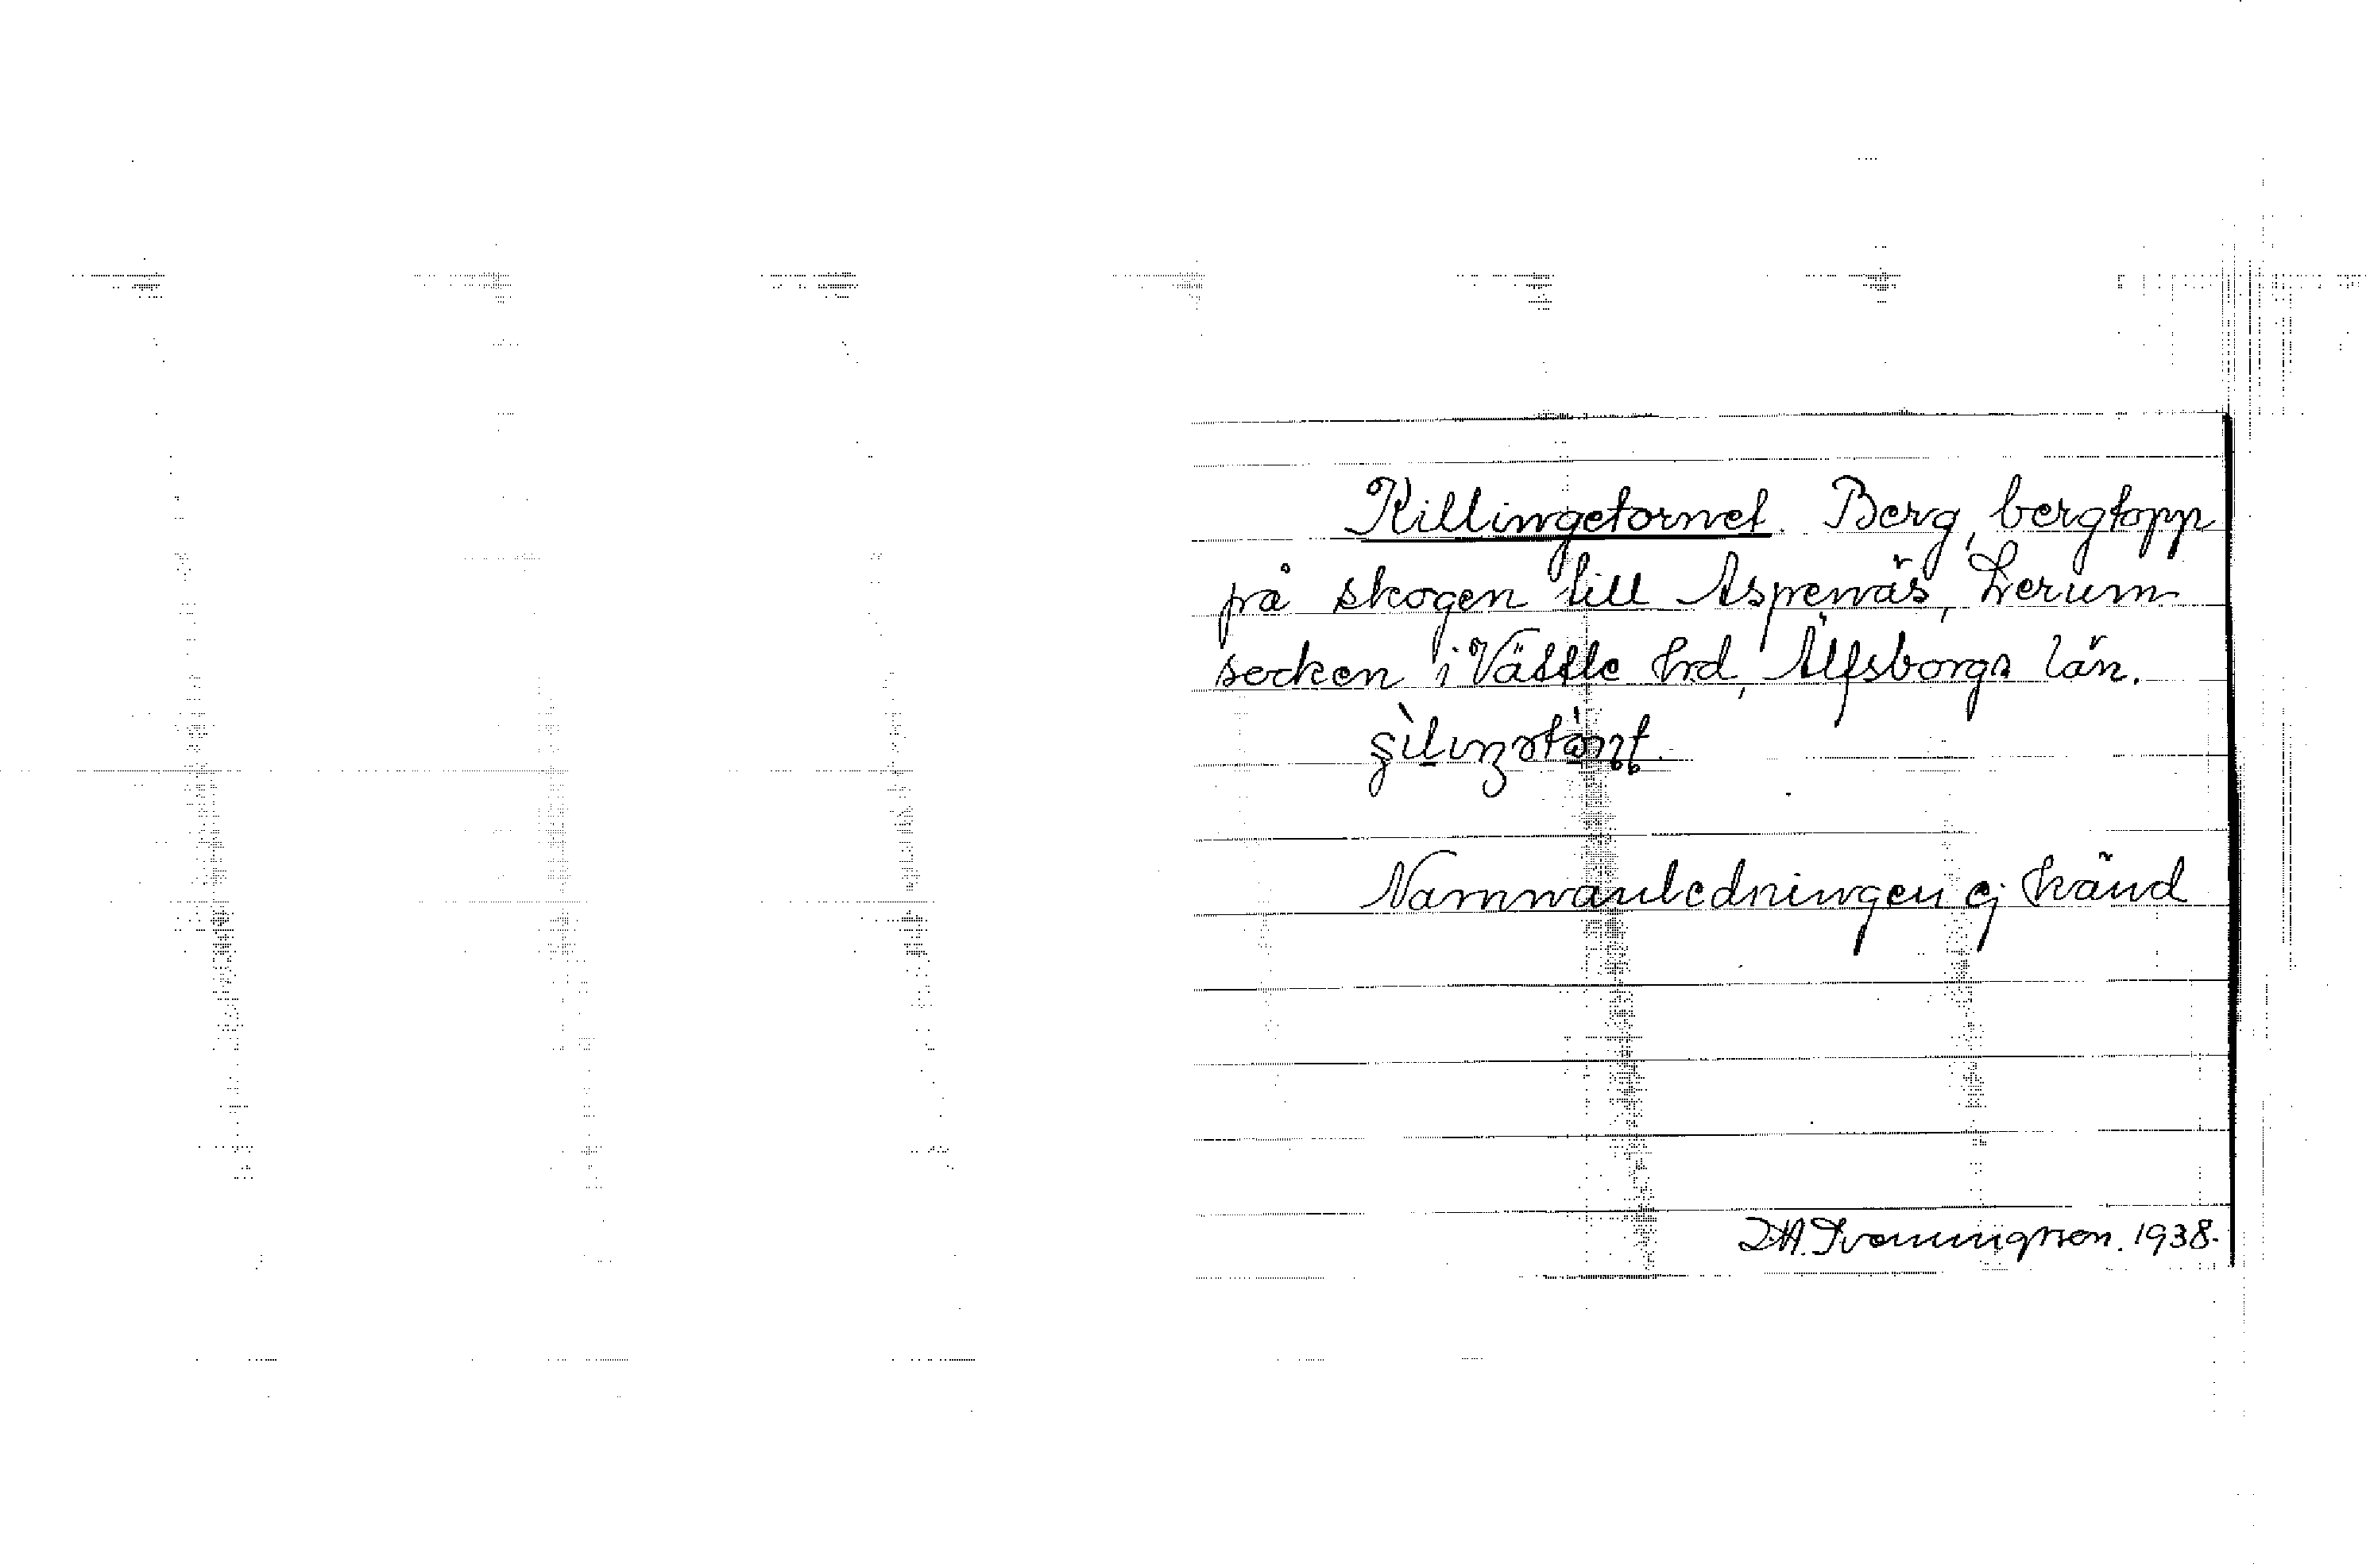 Killingetornet. Berg, bergtopp
på skogen till Aspenäs, Lerum
socken i Vättle hrd, Älfsborgs län.
Namnanledningen ej känd
1938.